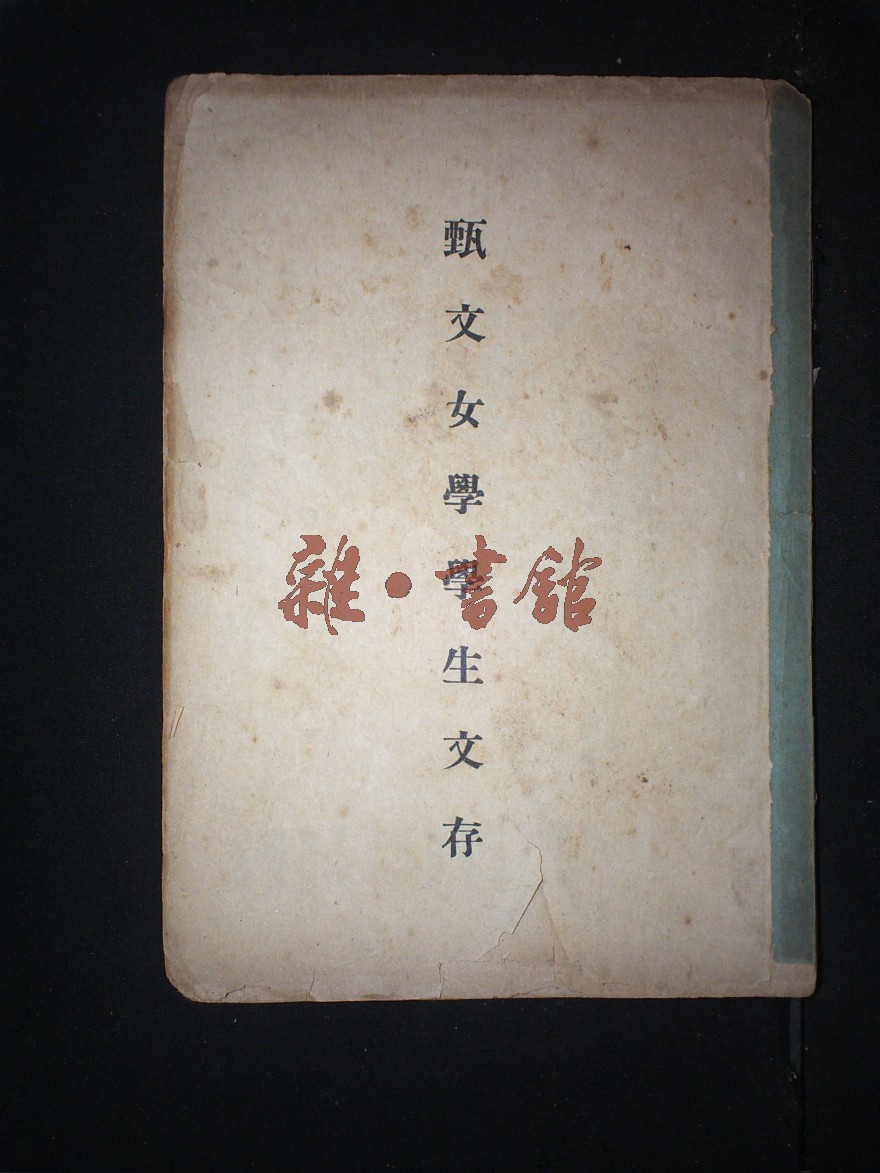 甄文女學學生文存
雜·書館